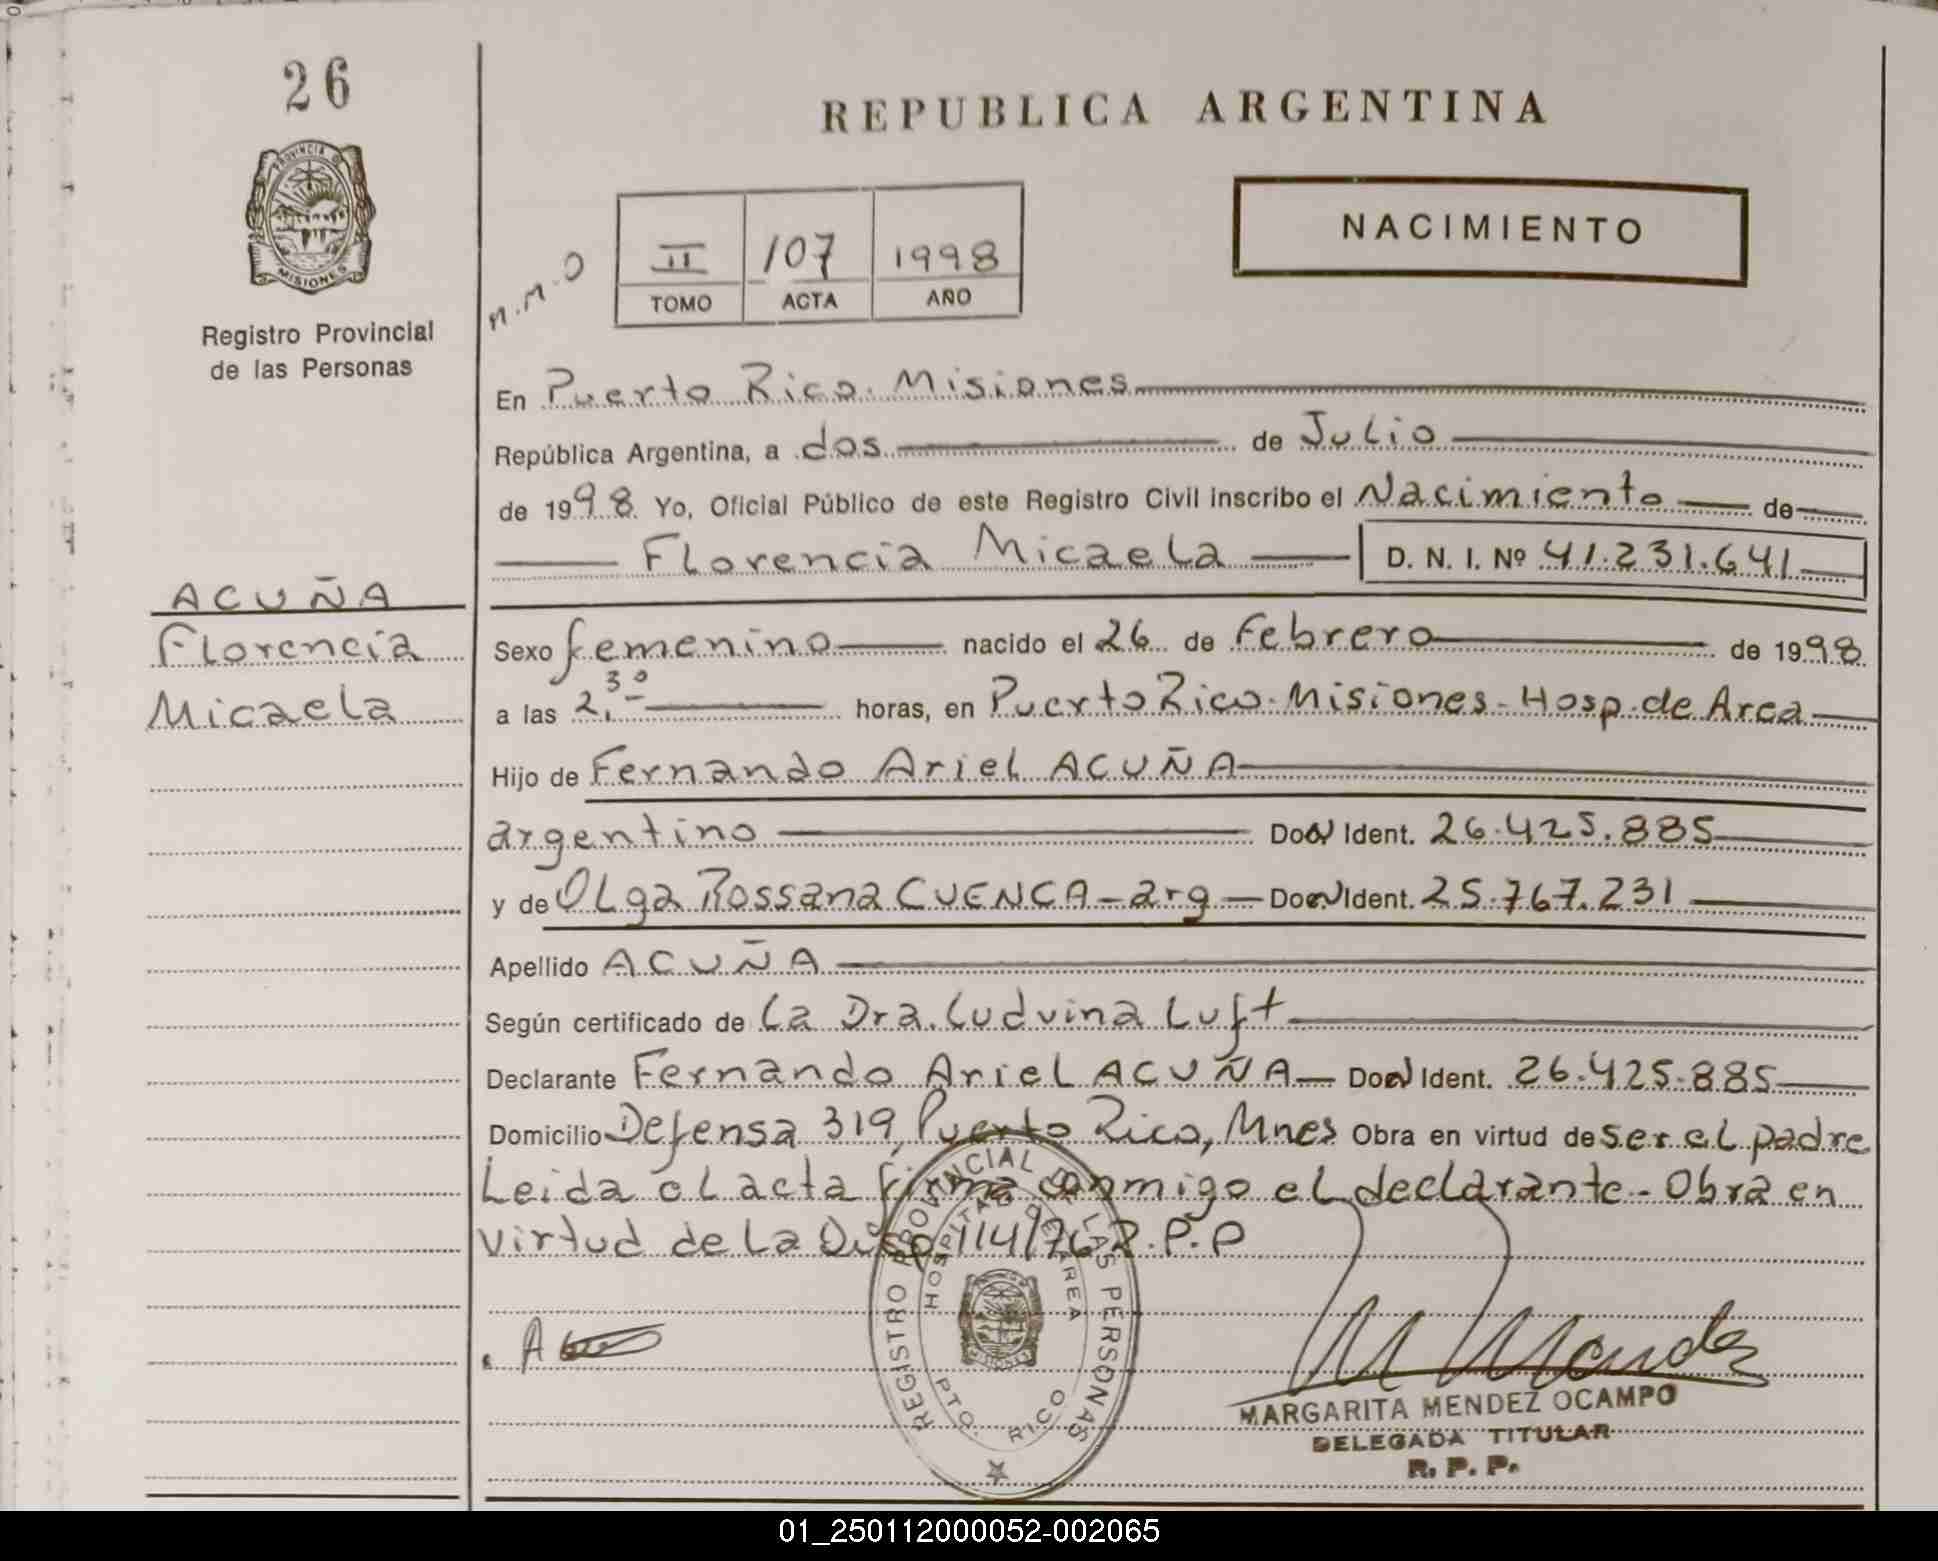 26
PROVINCIA DE
MISIONES
Registro Provincial
de las Personas
REPUBLICA ARGENTINA
NACIMIENTO
M.M.O
II 107 1998
TOMO ACTA AÑO
En Puerto Rico. Misiones
República Argentina, a dos de Julio
de 1998 Yo, Oficial Público de este Registro Civil inscribo el Nacimiento de
Florencia Micaela D. N. I. Nº 41.231.641
ACUÑA
Florencia
Micaela
Sexo femenino nacido el 26 de Febrero de 1998
a las 2,30 horas, en Puerto Rico. Misiones - Hosp. de Area
Hijo de Fernando Ariel ACUÑA
argentino Doc. Ident. 26.425.885
y de Olga Rossana CUENCA - arg - Doc. Ident. 25.767.231
Apellido ACUÑA
Según certificado de la Dra. Ludvina Luft
Declarante Fernando Ariel ACUÑA - Doc. Ident. 26.425.885
Domicilio Defensa 319, Puerto Rico, Mnes Obra en virtud de ser el padre
Leida el acta firma conmigo el declarante - Obra en
virtud de la Disp 114/76 R.P.P
REGISTRO PROVINCIAL DE LAS PERSONAS
HOSPITAL DE AREA
MISIONES
PTO. RICO
M Mendez
MARGARITA MENDEZ OCAMPO
DELEGADA TITULAR
R. P. P.
01_250112000052-002065